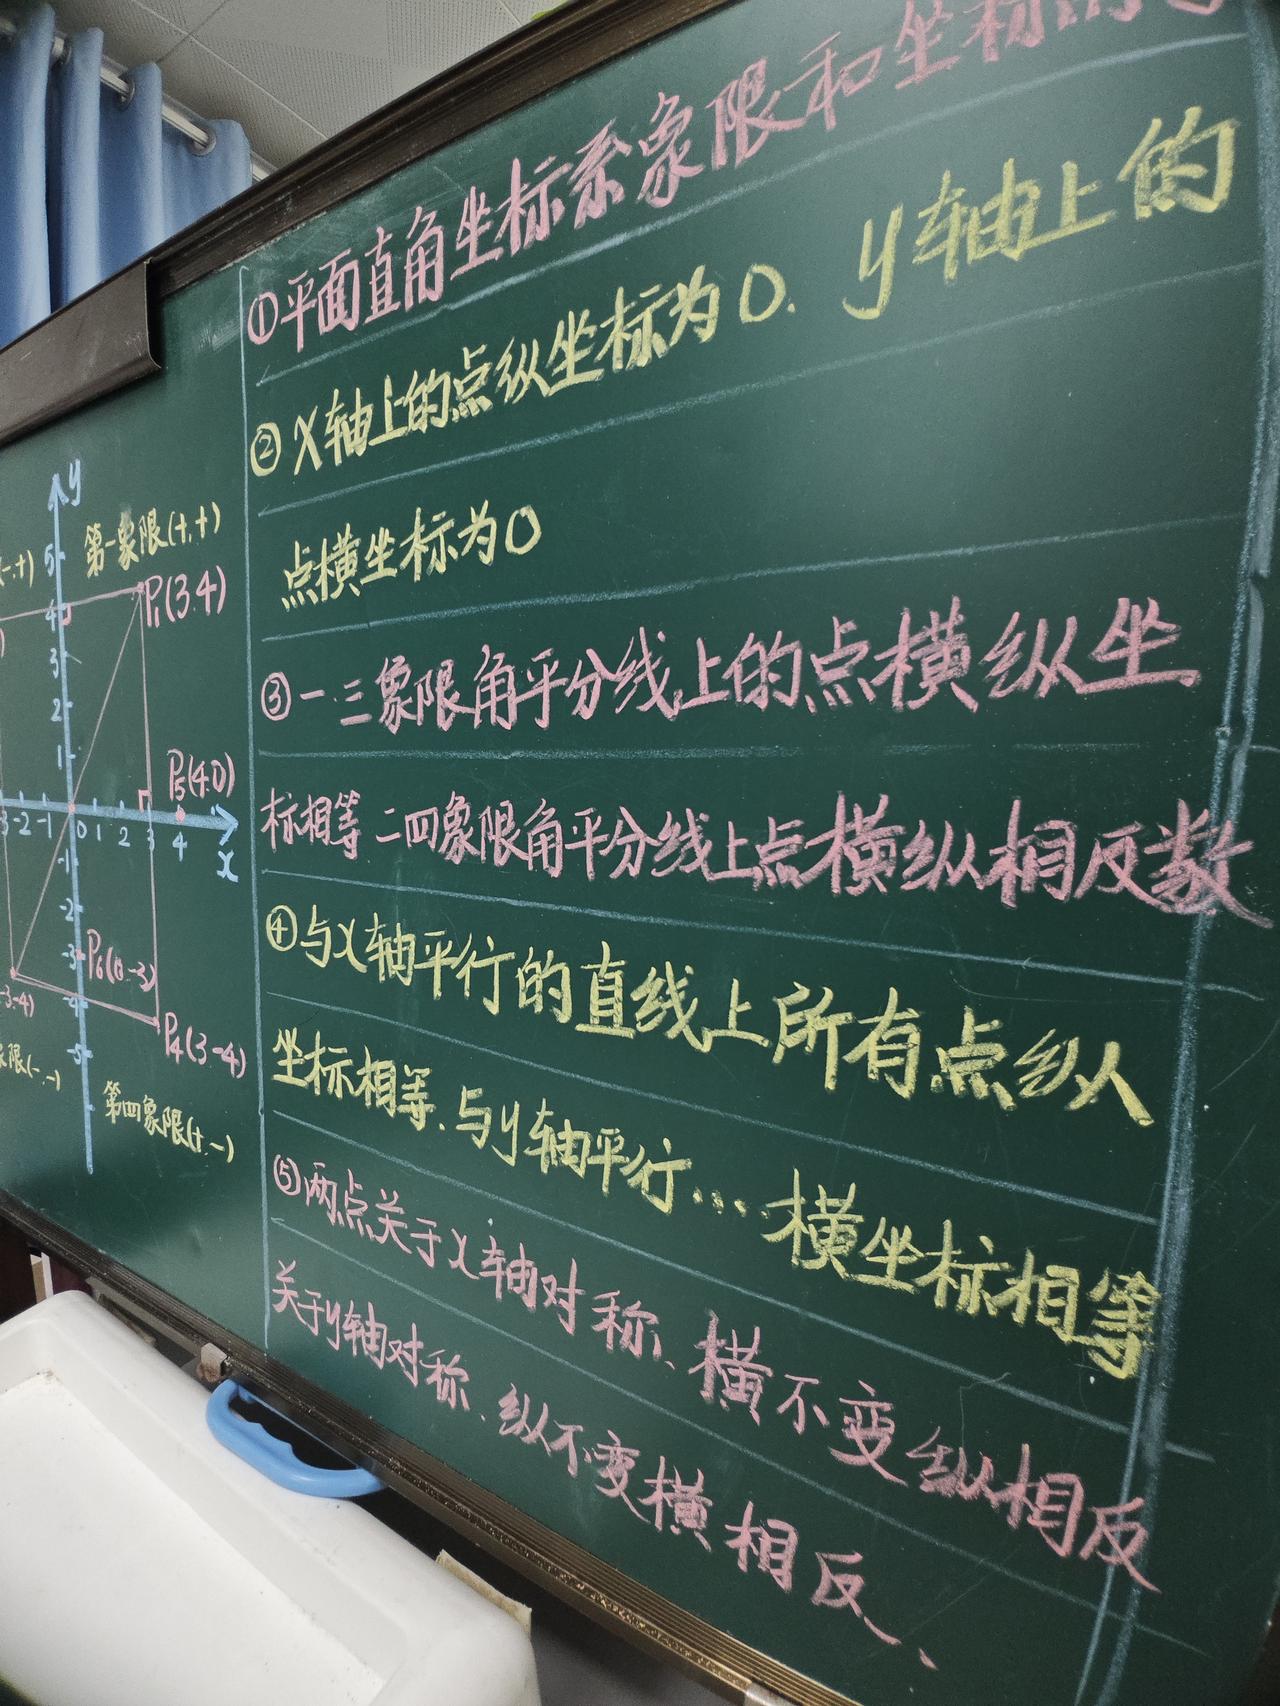 ①平面直角坐标系象限和坐标的
②x轴上的点纵坐标为0. y轴上的
点横坐标为0
③一.三象限角平分线上的点横纵坐
标相等 二四象限角平分线上点横纵相反数
④与x轴平行的直线上所有点纵
坐标相等、与y轴平行...横坐标相等
⑤两点关于x轴对称、横不变纵相反
关于y轴对称、纵不变横相反、
y
(-.+)
第一象限(+,+)
5
P₁(3.4)
4
3
2
1
P₅(4.0)
3 -2 -1 0 1 2 3 4
x
-1
-2
-3
P₆(0-3)
-3-4)
-4
P₄(3-4)
-5
限(-.-)
第四象限(+.-)